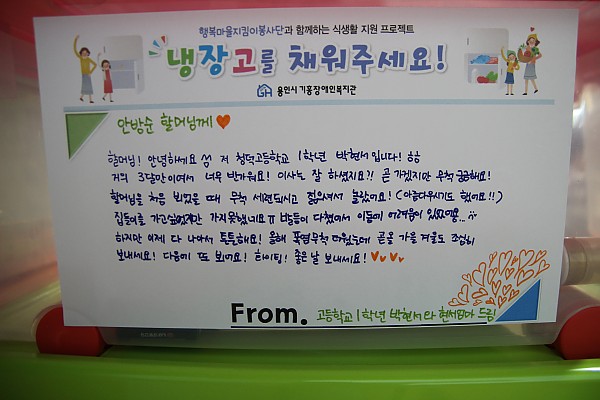 행복마을지킴이봉사단과 함께하는 식생활 지원 프로젝트
냉장고를 채워주세요!
용인시 기흥장애인복지관
안방순 할머님께 ♥
할머님! 안녕하세요 저 청덕고등학교 1학년 박현서입니다! ㅎㅎ
거의 3달만이여서 너무 반가워요! 이사는 잘 하셨지요?! 곧 가겠지만 무척 궁금해요!
할머님을 처음 뵈었을 때 무척 세련되시고 젊으셔서 놀랐어요! (아름다우시기도 했어요!!)
집들이를 가고싶었지만 가지못했네요ㅠ 발등이 다쳤어서 이동에 어려움이 있었어용...
하지만 이제 다 나아서 튼튼해요! 올해 폭염무척 더웠는데 곧올 가을 겨울도 조심히
보내세요! 다음에 또 뵈어요! 화이팅! 좋은 날 보내세요! ♥♥♥
From. 고등학교 1학년 박현서와 현서엄마 드림